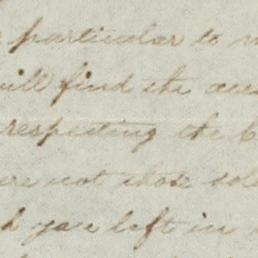 particular to
will find the
respecting the
are not those
you left in